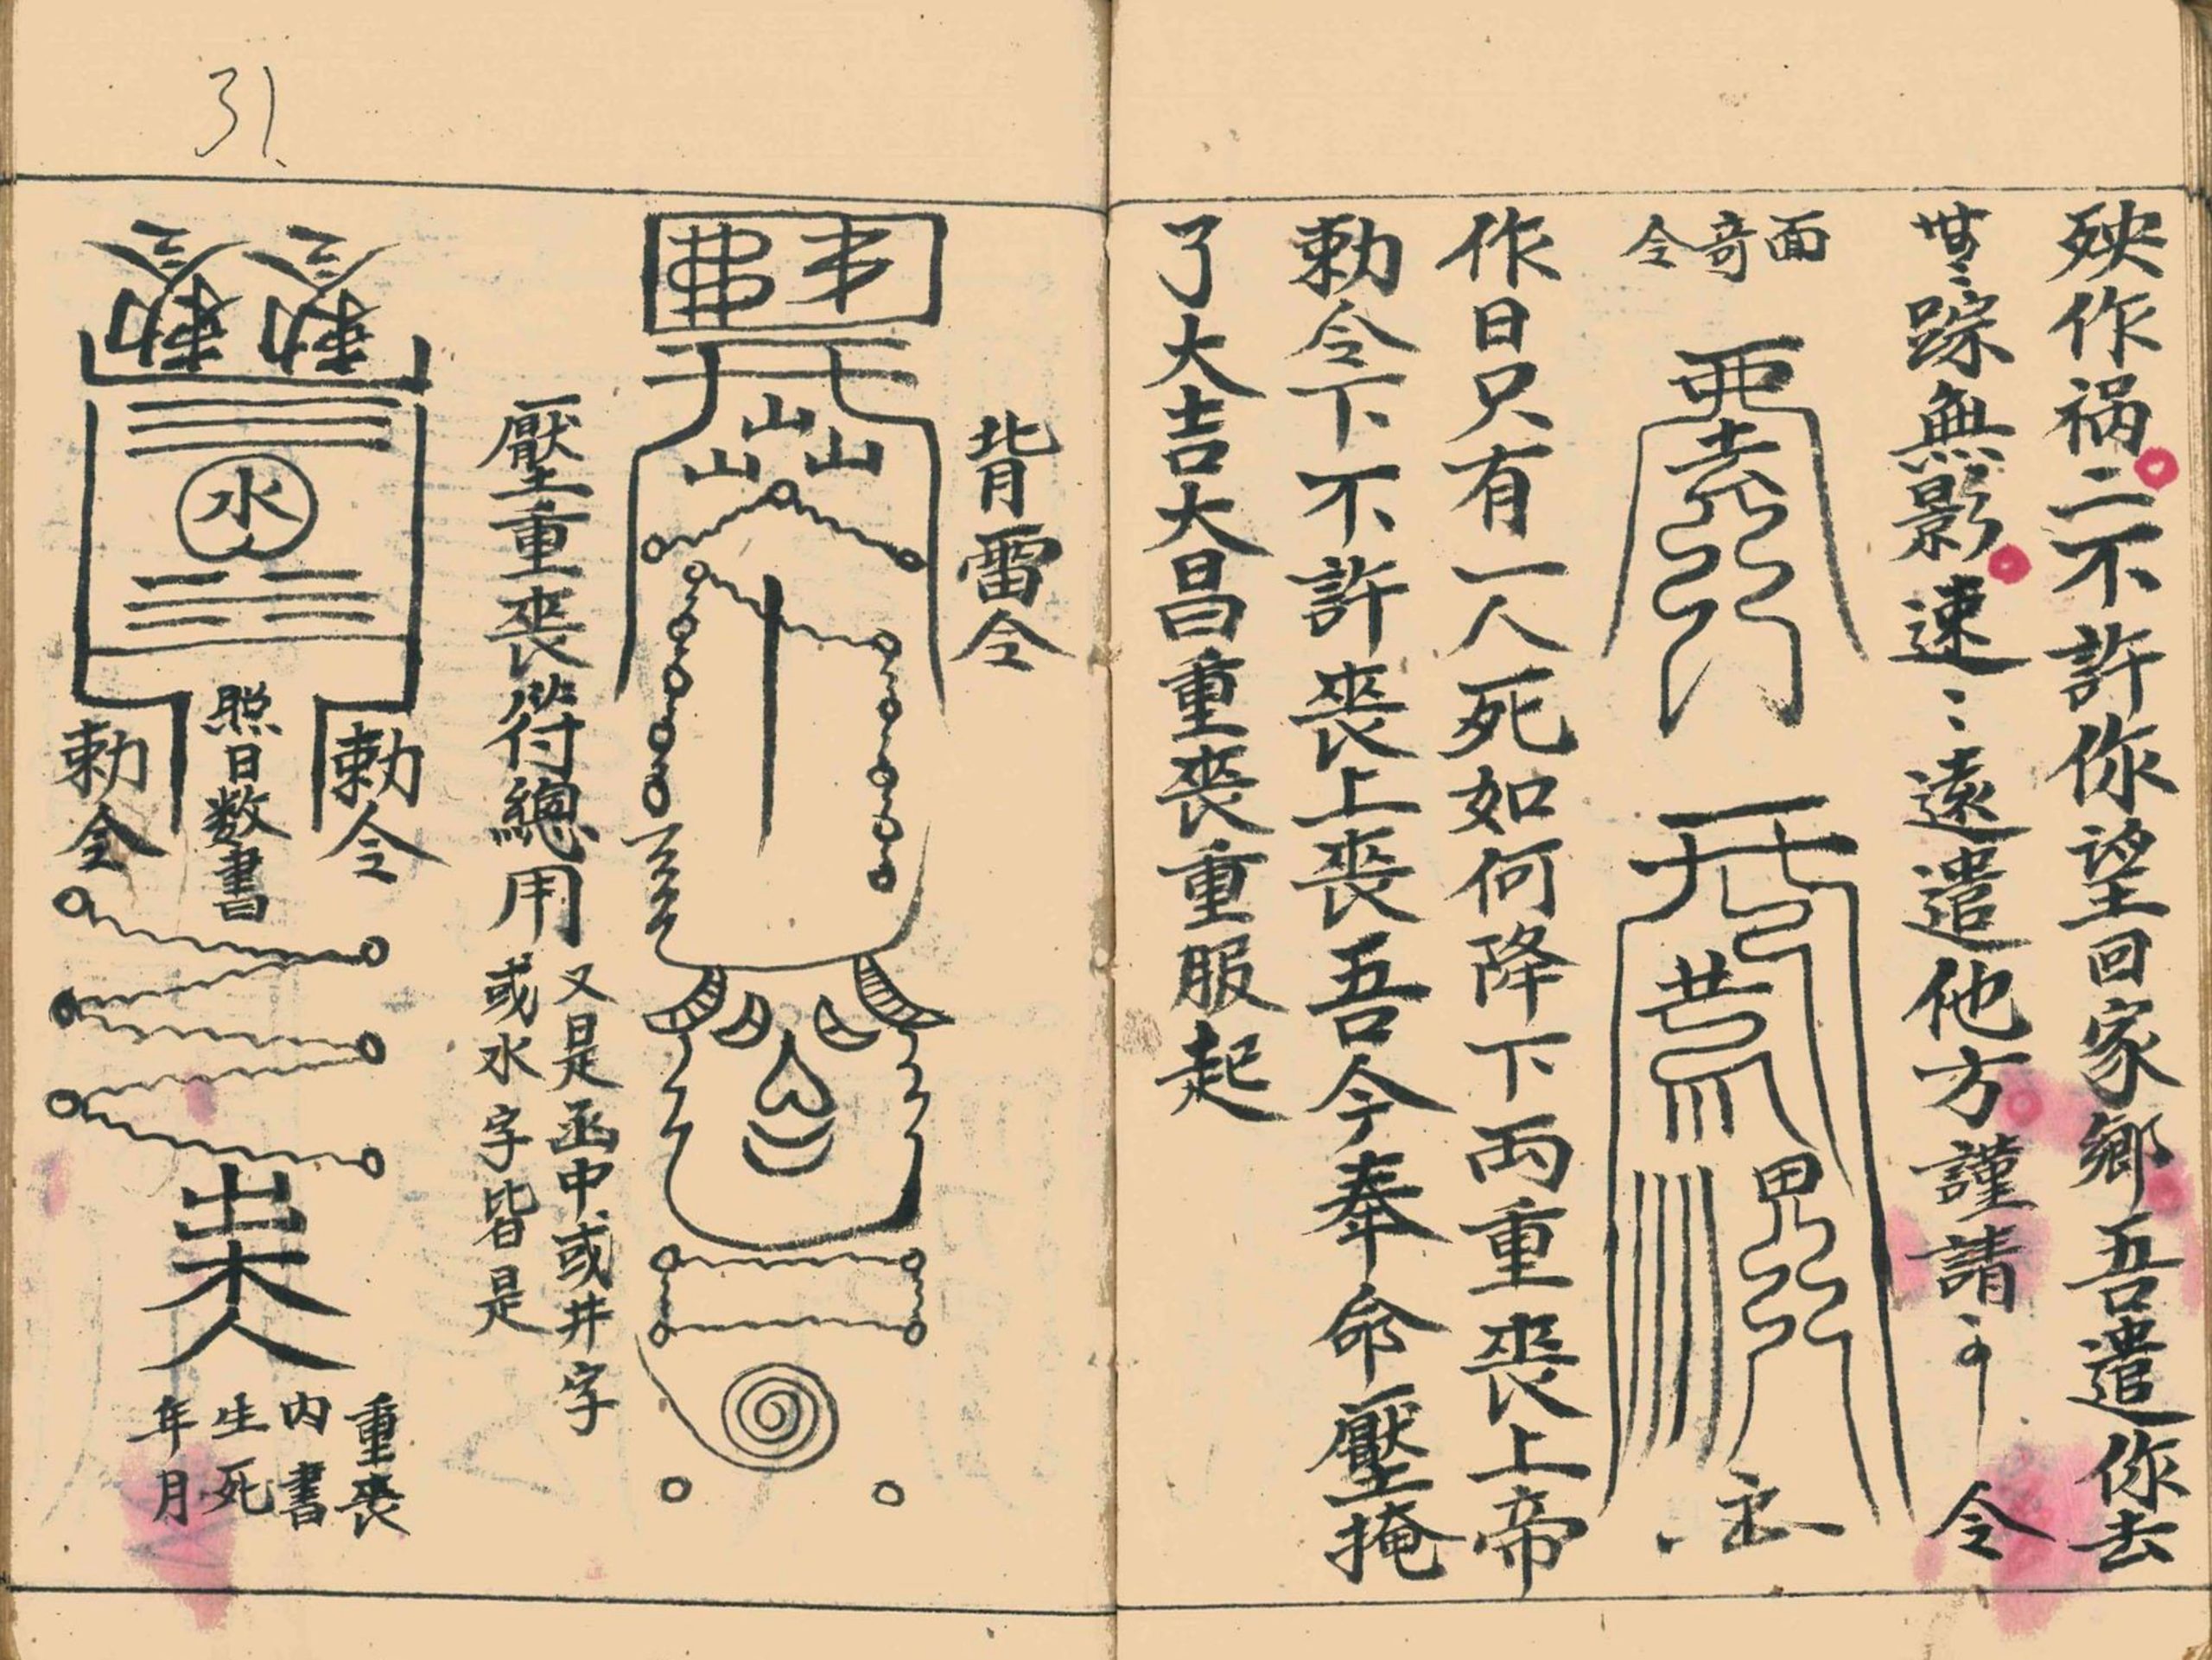 殃作祸二不許你望回家鄉吾遣你去
無影速〻遠遣他方謹請
令
面奇令
作日只有一人死如何降下両重喪上帝
勅令下不許喪上喪吾今奉命壓掩
了大吉大昌重喪重服起
31
背雷令
山山山
壓重喪符總用
又是函中或井字
或水字皆是
勅勅
水
勅令
照日数書
勅令
重喪
内書
生死
年月